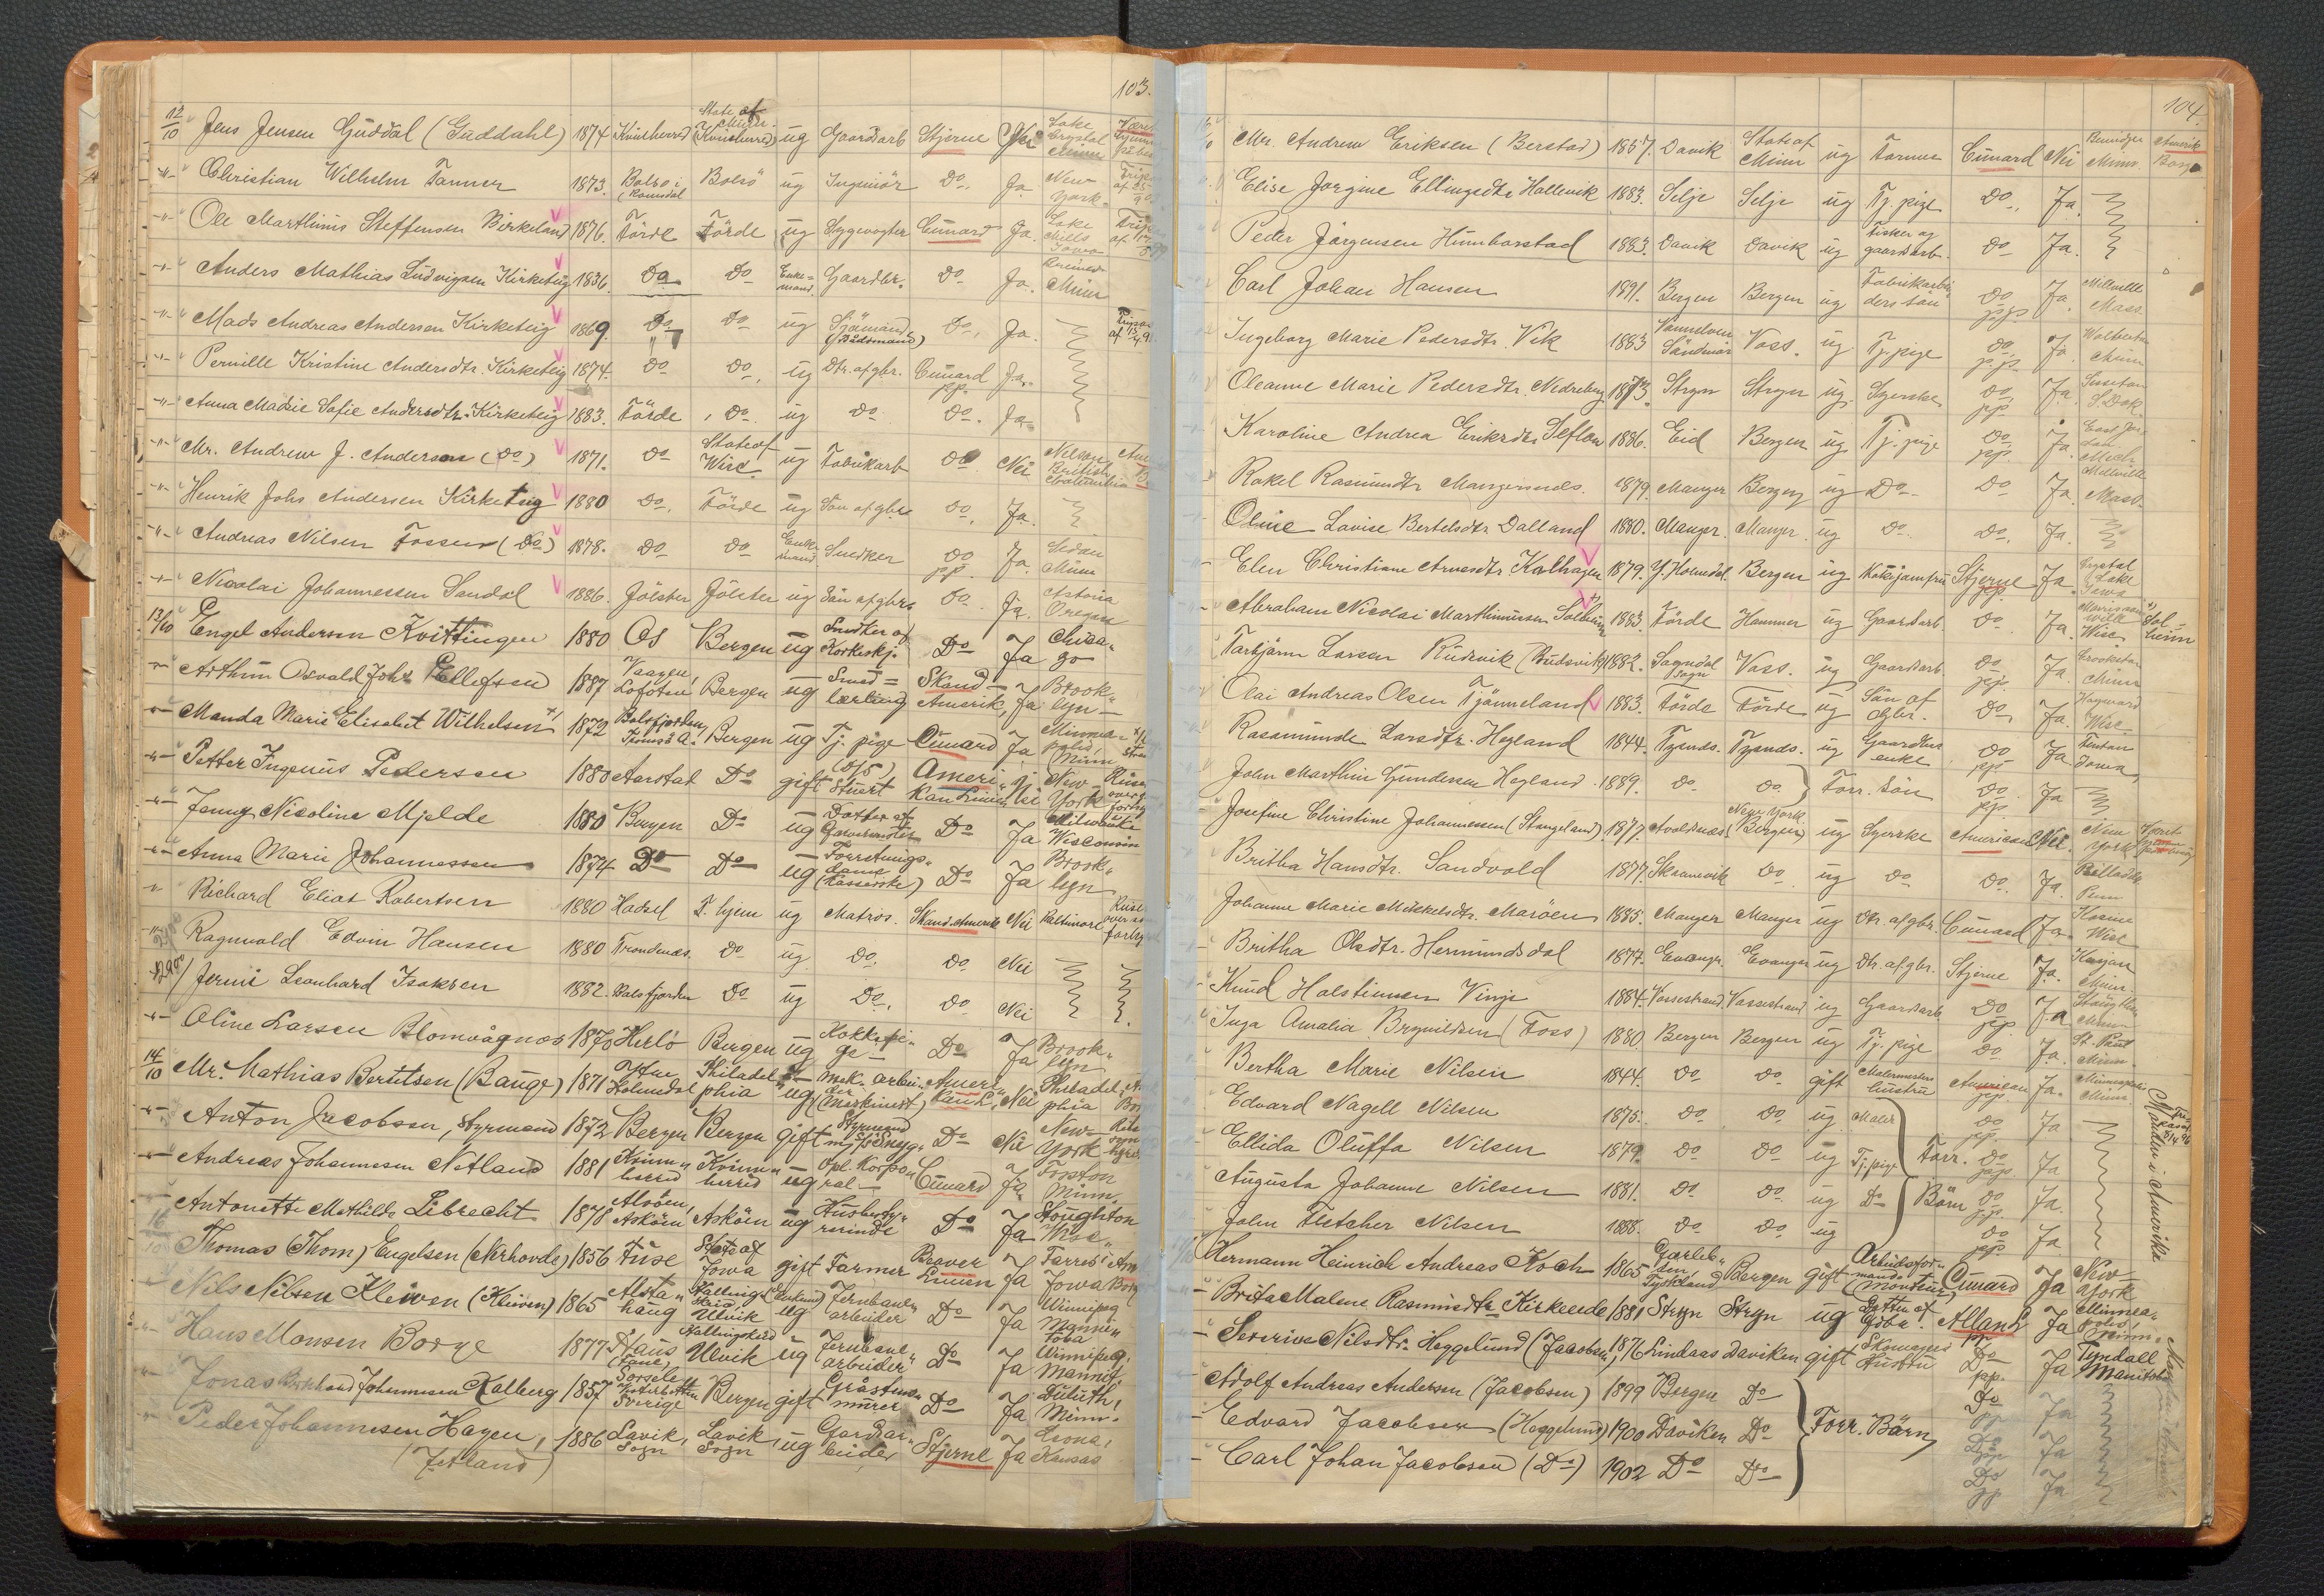 103.
12/10 Jens Jensen Guddal (Guddahl) 1874 Kvinherred State of Minn. (Kvinherred) ug Gaardarb Stjerne Nei Lake Crystal Minn
-"- Christian Wilhelm Tanner 1873. Bolsø i Romsdal Bolsö ug Ingeniör Do. Ja. New York
-"- Ole Marthinus Steffensen Birkeland 1876. Förde Förde ug Sygevogter Cunard Ja. Lake Mills Iowa
-"- Anders Mathias Ludvigsen Kirketeig 1836. Do Do Enkemand. Gaardbr. Do Ja. Minn
-"- Mads Andreas Andersen Kirketeig 1869. Do Do ug Sjömand (Baadsmand) Do. Ja.
-"- Pernille Kristine Andersdtr. Kirketeig 1874. Do Do. ug Dtr. af gbr. Cunard pp. Ja.
-"- Anna Madsie Sofie Andersdtr. Kirketeig 1883. Förde Do ug Do Do. Ja
-"- Mr. Andrew J. Anderson (Do) 1871. Do State of Wisc. ug Fabrikarb Do Nei Nelson British Columbia
-"- Henrik Johs Andersen Kirketeig 1880 Do. Förde ug Sön af gbr. Do. Ja.
-"- Andreas Nilsen Fossen (Do) 1878. Do Do Enkemand Snedker Do pp. Ja. Sedan Minn
-"- Nicolai Johannessen Sandal 1886. Jölster Jölster ug Sön af gbr. Do. Ja. Astoria Oregon
13/10 Engel Andersen Kvittingen 1880 Os Bergen ug Do Ja Chicago
-"- Arthur Osvald Johs Ellefsen 1887 Vaagen, Lofoten Bergen ug Smedlærling Skand-Amerik, Ja Brooklyn
-"- Manda Marie Elisabet Wilhelsen 1872 Balsfjorden, Tromsö A. Bergen ug Tj. pige Cunard Ja Minneapolis, Minn
-"- Petter Ingenius Pedersen 1880 Aarstat Do gift Stuert Amerikan Linien Nei New York
-"- Jenny Nicoline Mjelde 1880 Bergen Do ug Datter af Do Ja Milwaukee Wisconsin
-"- Anna Marie Johannessen 1874 Do Do ug Forretningsdame (Kasserske) Do Ja Brooklyn
" Richard Elias Robertsen 1880 Hadsel T. hjem ug Matros. Skand. Amerik Nei Baltimore
-"- Ragnvald Edvin Hansen 1880 Trondenæs. Do ug Do. Do Nei
Leonhard Isaksen 1882. Balsfjorden Do ug Do. Do Nei
-"- Oline Larsen Blomvågnes 1870 Herlö Bergen ug Kokkepige Do Ja Brooklyn
14/10 Mr. Mathias Bertilsen (Bauge) 1871 Ytre Holmedal Philadelphia ug mek. arbeider (Maskinist) Amerikan L. Nei Philadelphia
-"- Anton Jacobsen, Styrmand 1872 Bergen Bergen gift Styrmand Do Nei New-York
-"- Andreas Johannesen Netland 1881 Kvinnherred Kvinnherred ug Opl. Korporal Cunard Ja Fosston Minn.
-"- Antonette Mathilde Librecht 1878 Alvöen, Asköen Asköen ug Husbestyrerinde Do Ja Stoughton Wisc.
16/10 Thomas (Thom) Engelsen (Nerhovde) 1856 Fuse State of Iowa gift Farmer Beaver Linien Ja Iowa
-"- Nils Nilsen Kleiven (Kleiven) 1865 Alstahaug Ulvik ug Jernbanearbeider Do Ja Winnipeg Mannitoba
-"- Hans Monsen Borge 1877 Haus (Fane) Hallingskeid Ulvik ug Jernbanearbeider Do Ja Winnipeg, Mannit.
-"- Jonas Johannesen Kalberg 1857 Sorsele Vesterbotten Sverige Bergen gift Gråstensmurer Do Ja Duluth, Minn.
-"- Peder Johannesen Hagen, (Jetland) 1886 Lavik, Sogn Lavik, Sogn ug Gardsarbeider Stjerne Ja Kansas
104.
Mr. Andrew Eriksen (Berstad) 1857. Davik State of Minn ug Farmer Cunard Nei Bemidger Minn. Amerik Borger
Elise Jorgine Ellingsdtr Hallevik 1883. Selje Selje ug Tj. pige Do. Ja.
Peder Jørgensen Humborstad 1883. Davik Davik ug Fisker og gaardsarb. Do Ja.
Carl Johan Hansen 1891. Bergen Bergen ug Fabrikarbeiders sön Do pp. Ja. Millville Mass.
Ingeborg Marie Pedersdtr. Vik 1883 Vannelven Söndmör Voss. ug Tj. pige Do. pp. Ja. Minn
Oleanne Marie Pedersdtr. Nedreberg 1873. Stryn Stryn ug. Syerske Do. pp. Ja. S. Dak.
Karoline Andrea Eriksdtr. Leflow 1886. Eid Bergen ug Tj. pige Do. pp. Ja. East Jordan Mich
Rakel Rasmusdtr Mangersnes. 1879. Manger Bergen ug Do Do Ja. Millville Mass.
Oline Lovise Bertelsdtr. Dalland 1880. Manger. Manger. ug Do Do. Ja.
Elen Christiane Arnesdtr. Kalhagen 1879. Y. Holmedal. Bergen ug Kokkejomfru Stjerne pp. Ja. Crystal Lake Iowa
Abraham Nicolai Marthinussen Solheim 1883. Förde Hammer ug Gaardsarb. Do Ja. Wisc Solheim
Torbjörn Larsen Rudsvik (Budsvik) 1882. Sogndal Sogn Voss. ug Gaardsarb Do pp. Ja. Crookston Minn
Olai Andreas Olsen Tjönneland 1883. Förde Förde ug Sön af gbr. Do Ja. Hayward Wisc
Rasmunde Larsdtr. Hegland 1844. Tysnes. Tysnes. ug Gaardbrs enke Do pp. Ja Fenton Iowa
John Marthin Gundersen Hegland 1889. Do Do. Forr. sön Do pp. Ja
Josefine Christine Johannessen (Stangeland) 1877. Avaldsnæs New York (Bergen) ug Syerske American Nei. New York
Britha Hansdtr. Sandvold 1877. Skaanevik Do ug Do Do. Ja. Penn
Johanne Marie Mikkelsdtr. Marøen 1885. Manger Manger ug Dtr. af gbr. Cunard Ja. Wisc
Britha Olsdtr. Hermundsdal 1877. Evanger. Evanger ug Dtr. af gbr. Stjerne Ja. Minn.
Knud Holstinussen Vinje 1884. Vossestrand. Vossestrand ug Gaardsarb. Do pp. Ja Minn
Inga Amalia Brynildsen (Foss) 1880. Bergen Bergen ug Tj. pige Do Ja. St. Paul Minn.
Bertha Marie Nilsen 1844. Do Do gift Malermesters hustru American pp. Ja. Minneapolis Minn.
Edvard Nagell Nilsen 1875. Do Do. ug Maler Do pp. Ja
Ellida Oluffa Nilsen 1879. Do Do ug Tj. pige Forr. Do pp. Ja
Augusta Johanne Nilsen 1881. Do Do. ug Do Börn Do pp. Ja.
John Fletcher Nilsen 1888. Do Do. ug Do pp Ja
Manden i Amerika
Hermann Heinrich Andreas Koch 1865 Tyskland Bergen gift Arbeidsformand (Montør) Cunard Ja New-York
Brita Malene Rasmusdtr. Kirkeeide 1881 Stryn Stryn ug Datter af Gdbr. Allan L Ja Minneapolis, Minn.
Severine Nilsdtr. Heggelund (Jacobsen) 1876 Lindaas Daviken gift Skomagers Hustru Do pp. Ja Tyndall Manitoba
Adolf Andreas Andersen (Jacobsen) 1899 Bergen Do Do pp Ja
Edvard Jacobsen (Heggelund) 1900 Daviken Do Forr. Börn Do pp Ja
Carl Johan Jacobsen (Do) 1902 Do Do Do pp Ja